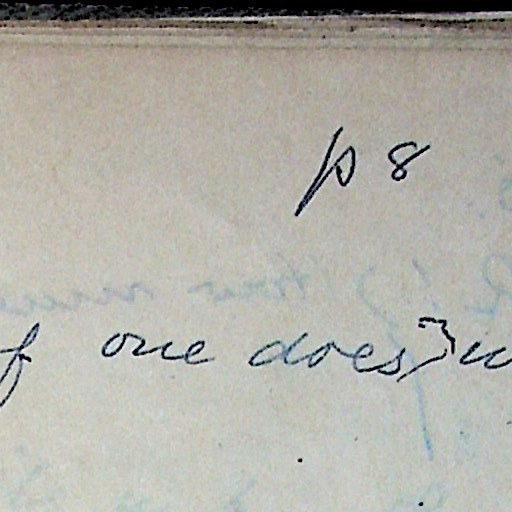 p 8
f one does